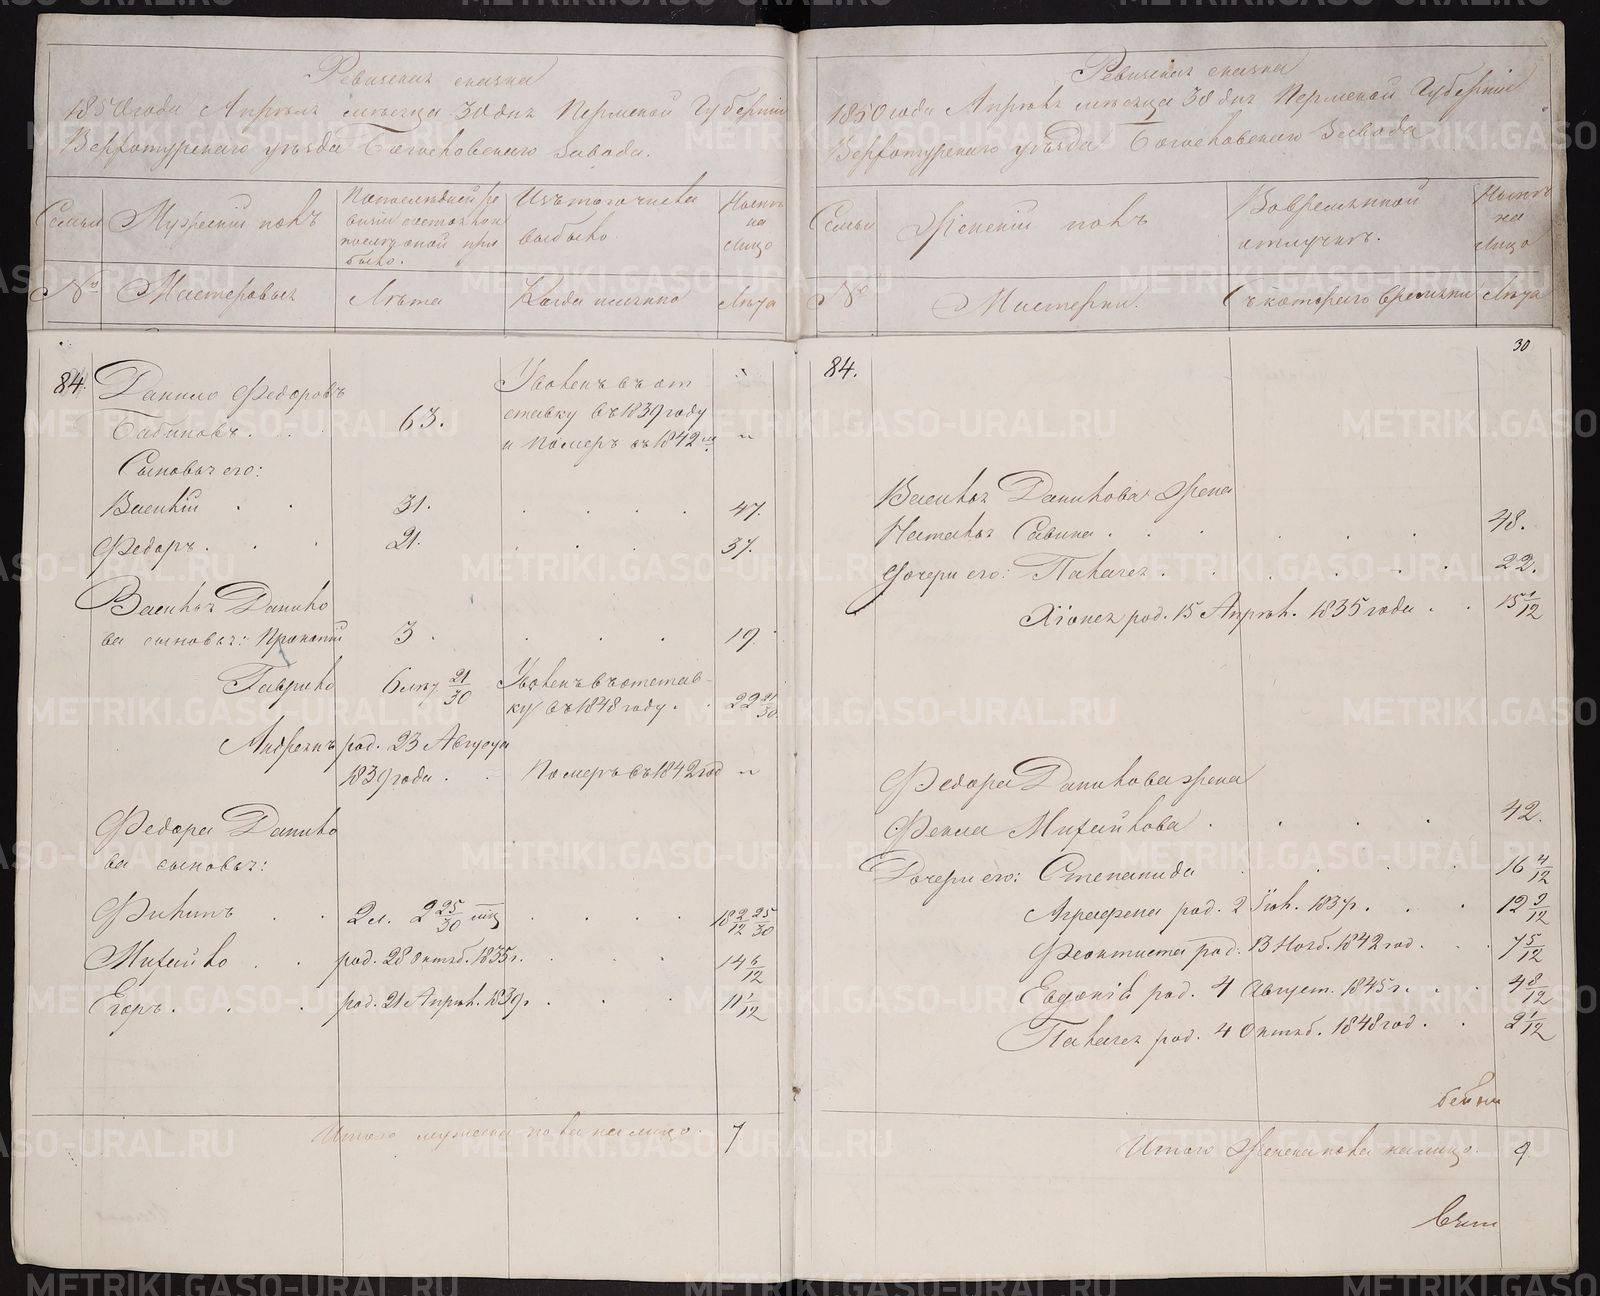 Ревизская сказка
1850 года Апреля месяца 30 дня Пермской Губернии
Верхотурскаго уезда Богословскаго завода.
Семьи
Мужескій полъ
По последней ре
визіи состояло и
после оной при
было.
Изъ того числа
выбыло.
Ныне
на
лицо
№
Мастеровые
Лета
Когда именно
Лета
84.
Данило Федоровъ
Бабиновъ.
63.
Уволенъ въ от
ставку въ 1839 году
и померъ въ 1842 м.
"
Сыновья его:
Василій
31.
47.
Федоръ.
21.
37.
Василья Данило
ва сыновья: Прокопій
3.
19.
Гаврило
6 лет 21/30
Уволенъ въ отстав-
ку въ 1848 году.
22 21/30.
Андреянъ род. 23 Августа
1839 года.
Померъ въ 1842 год
"
Федора Данило
ва сыновья:
Филипъ
2 л. 2 25/30 мц
18 2/12 25/30
Михайло
род. 28 Октяб. 1835 г.
14 6/12
Егоръ.
род. 21 Апрел. 1839 г.
11 1/12
Итого мужеска пола на лицо.
7
Ревизская сказка
1850 года Апреля месяца 30 дня Пермской Губерніи
Верхотурскаго уезда Богословскаго Завода
Семьи
Женскій полъ
Во временной
отлучке.
Ныне
на
лицо
№
Мастерки.
Съ котораго времени
Лета
30
84.
Василья Данилова жена
Наталья Савина.
48.
Дочери его: Палагея.
22.
Хіонея род. 15 Апрел. 1835 года.
15 1/12
Федора Данилова жена
Фекла Михайлова.
42.
Дочери его: Степанида
16 4/12
Аграфена род. 2 Іюл. 1837 г.
12 9/12
Феоктиста род. 13 Нояб. 1842 год.
7 5/12
Евгенія род. 4 Август. 1845 г.
4 8/12
Палагея род. 4 Октяб. 1848 год.
2 1/12
Итого Женска пола на лицо.
9
METRIKI.GASO-URAL.RU